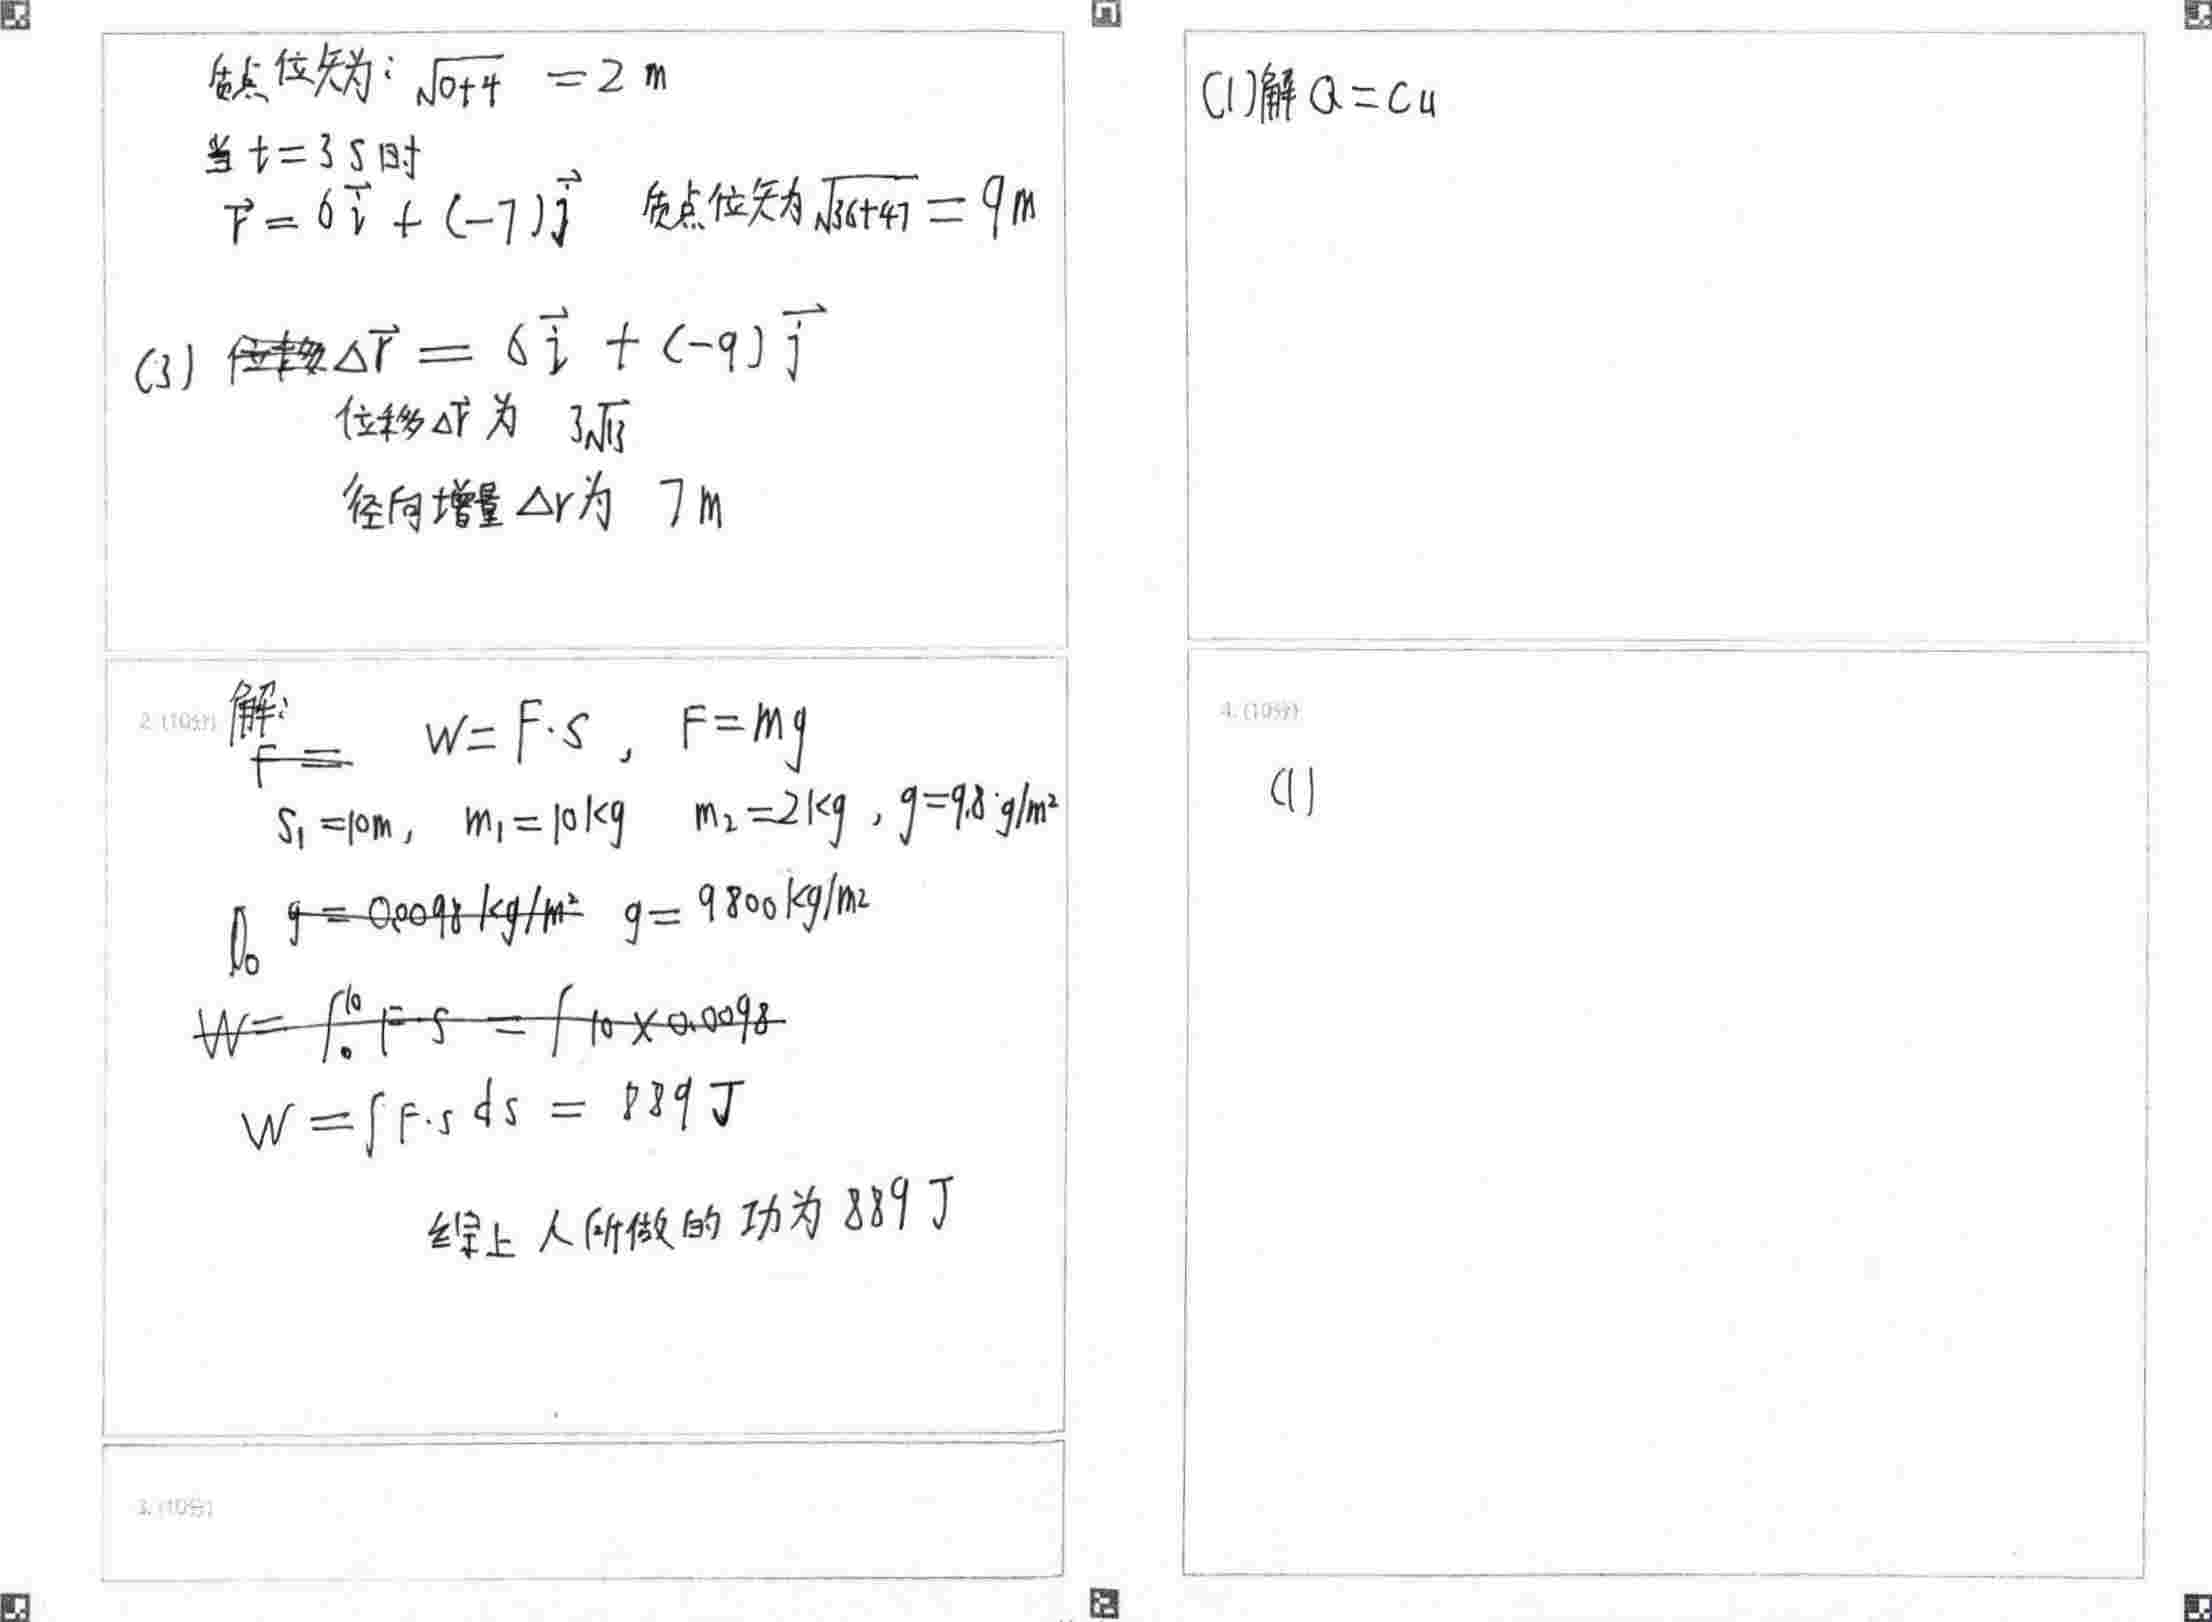 质点位矢为: √0+4 = 2 m
当 t=3 s 时
r⃗ = 6i⃗ + (-7)j⃗ 质点位矢为 √36+47 = 9m
(3) Δr⃗ = 6i⃗ + (-9)j⃗
位移Δr⃗为 3√13
径向增量 Δr为 7m
2. (10分) 解:
F =
W = F·S , F = mg
S₁=10m, m₁=10kg m₂=2kg, g=9.8·g/m²
g = 0.0098 kg/m² g = 9800kg/m²
W = ∫₀¹⁰ F·S = ∫ 10×0.0098
W = ∫F·s ds = 889 J
综上 人所做的 功为 889 J
3. (10分)
(1)解 Q=Cu
4. (10分)
(1)